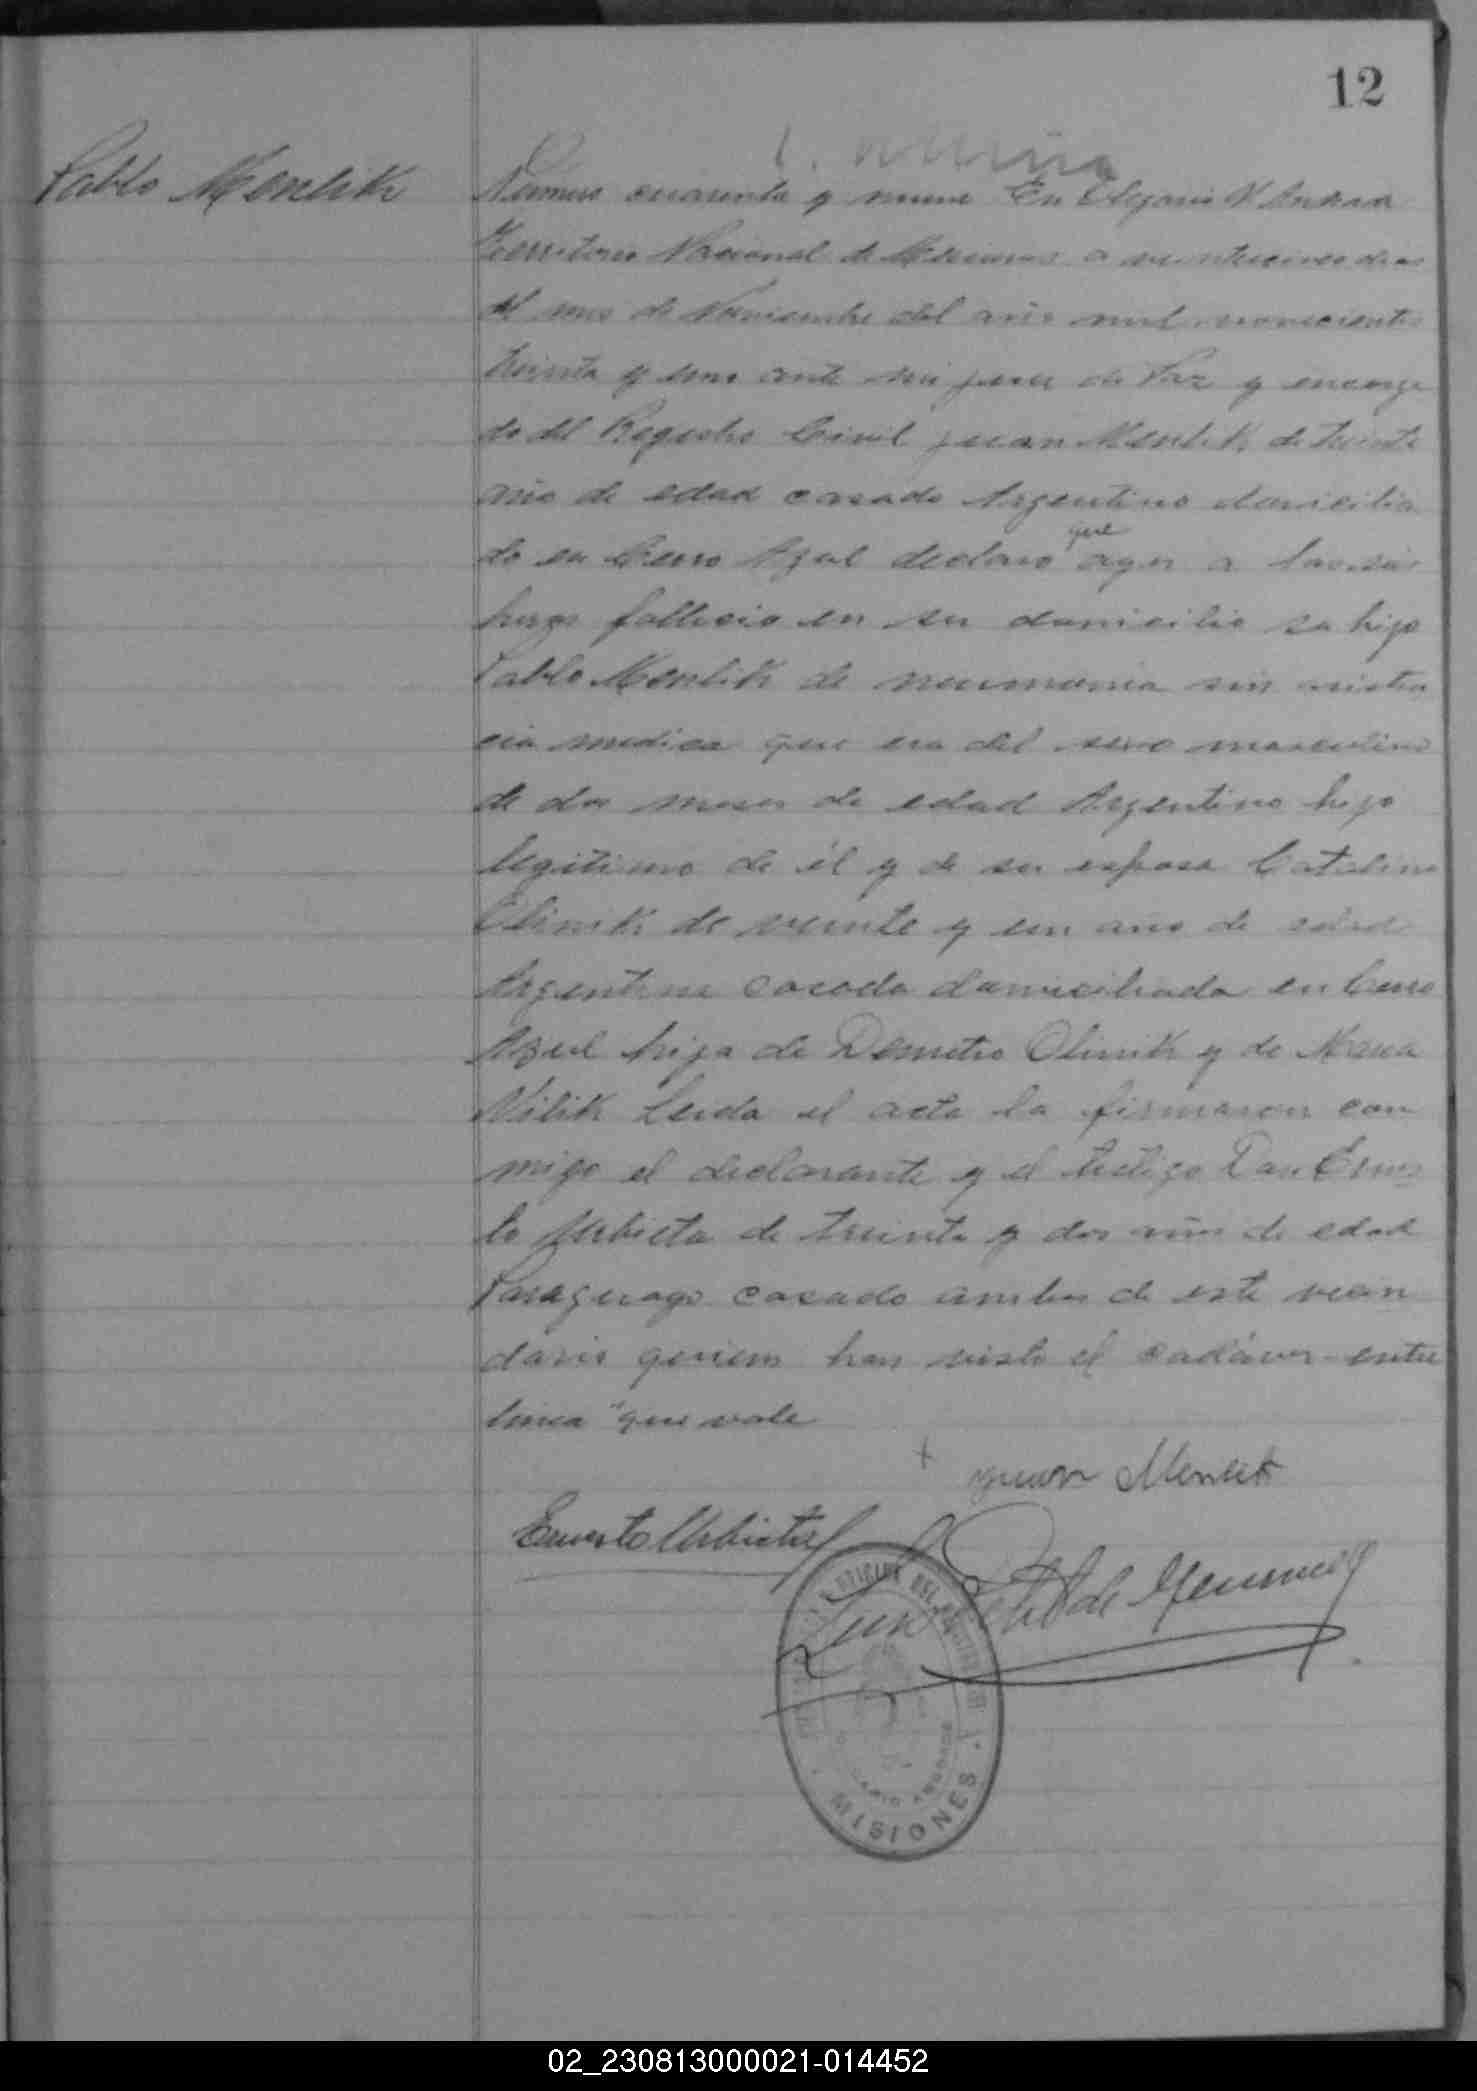 12
Pablo Menlik
Número cuarenta y nueve En Olegario V Andrad
Territorio Nacional de Misiones a veinticinco dias
del mes de Noviembre del año mil novecientos
treinta y uno ante mi juez de Paz y encarga
do del Registro Civil juan Menlik de treinta
año de edad casado Argentino domicilia
que
do en Cerro Azul declaro ayer a las seis
horas fallecio en su domicilio su hijo
Pablo Menlik de neumonia sin asisten
cia medica que era del sexo masculino
de dos meses de edad Argentino hijo
legitimo de él y de su esposa Catalina
Olinik de veinte y un año de edad
Argentina casada domiciliada en Cerro
Azul hija de Demetrio Olinik y de Maria
Vilik Leida el acta la firmaron con
migo el declarante y el testigo Don Ernes
to Urbieta de treinta y dos años de edad
Paraguayo casado ambos de este vecin
dario quienes han visto el cadáver-entre
linea "que vale
+ juan Menlik
Ernesto Urbieta
OFICINA DEL
MISIONES
02_230813000021-014452